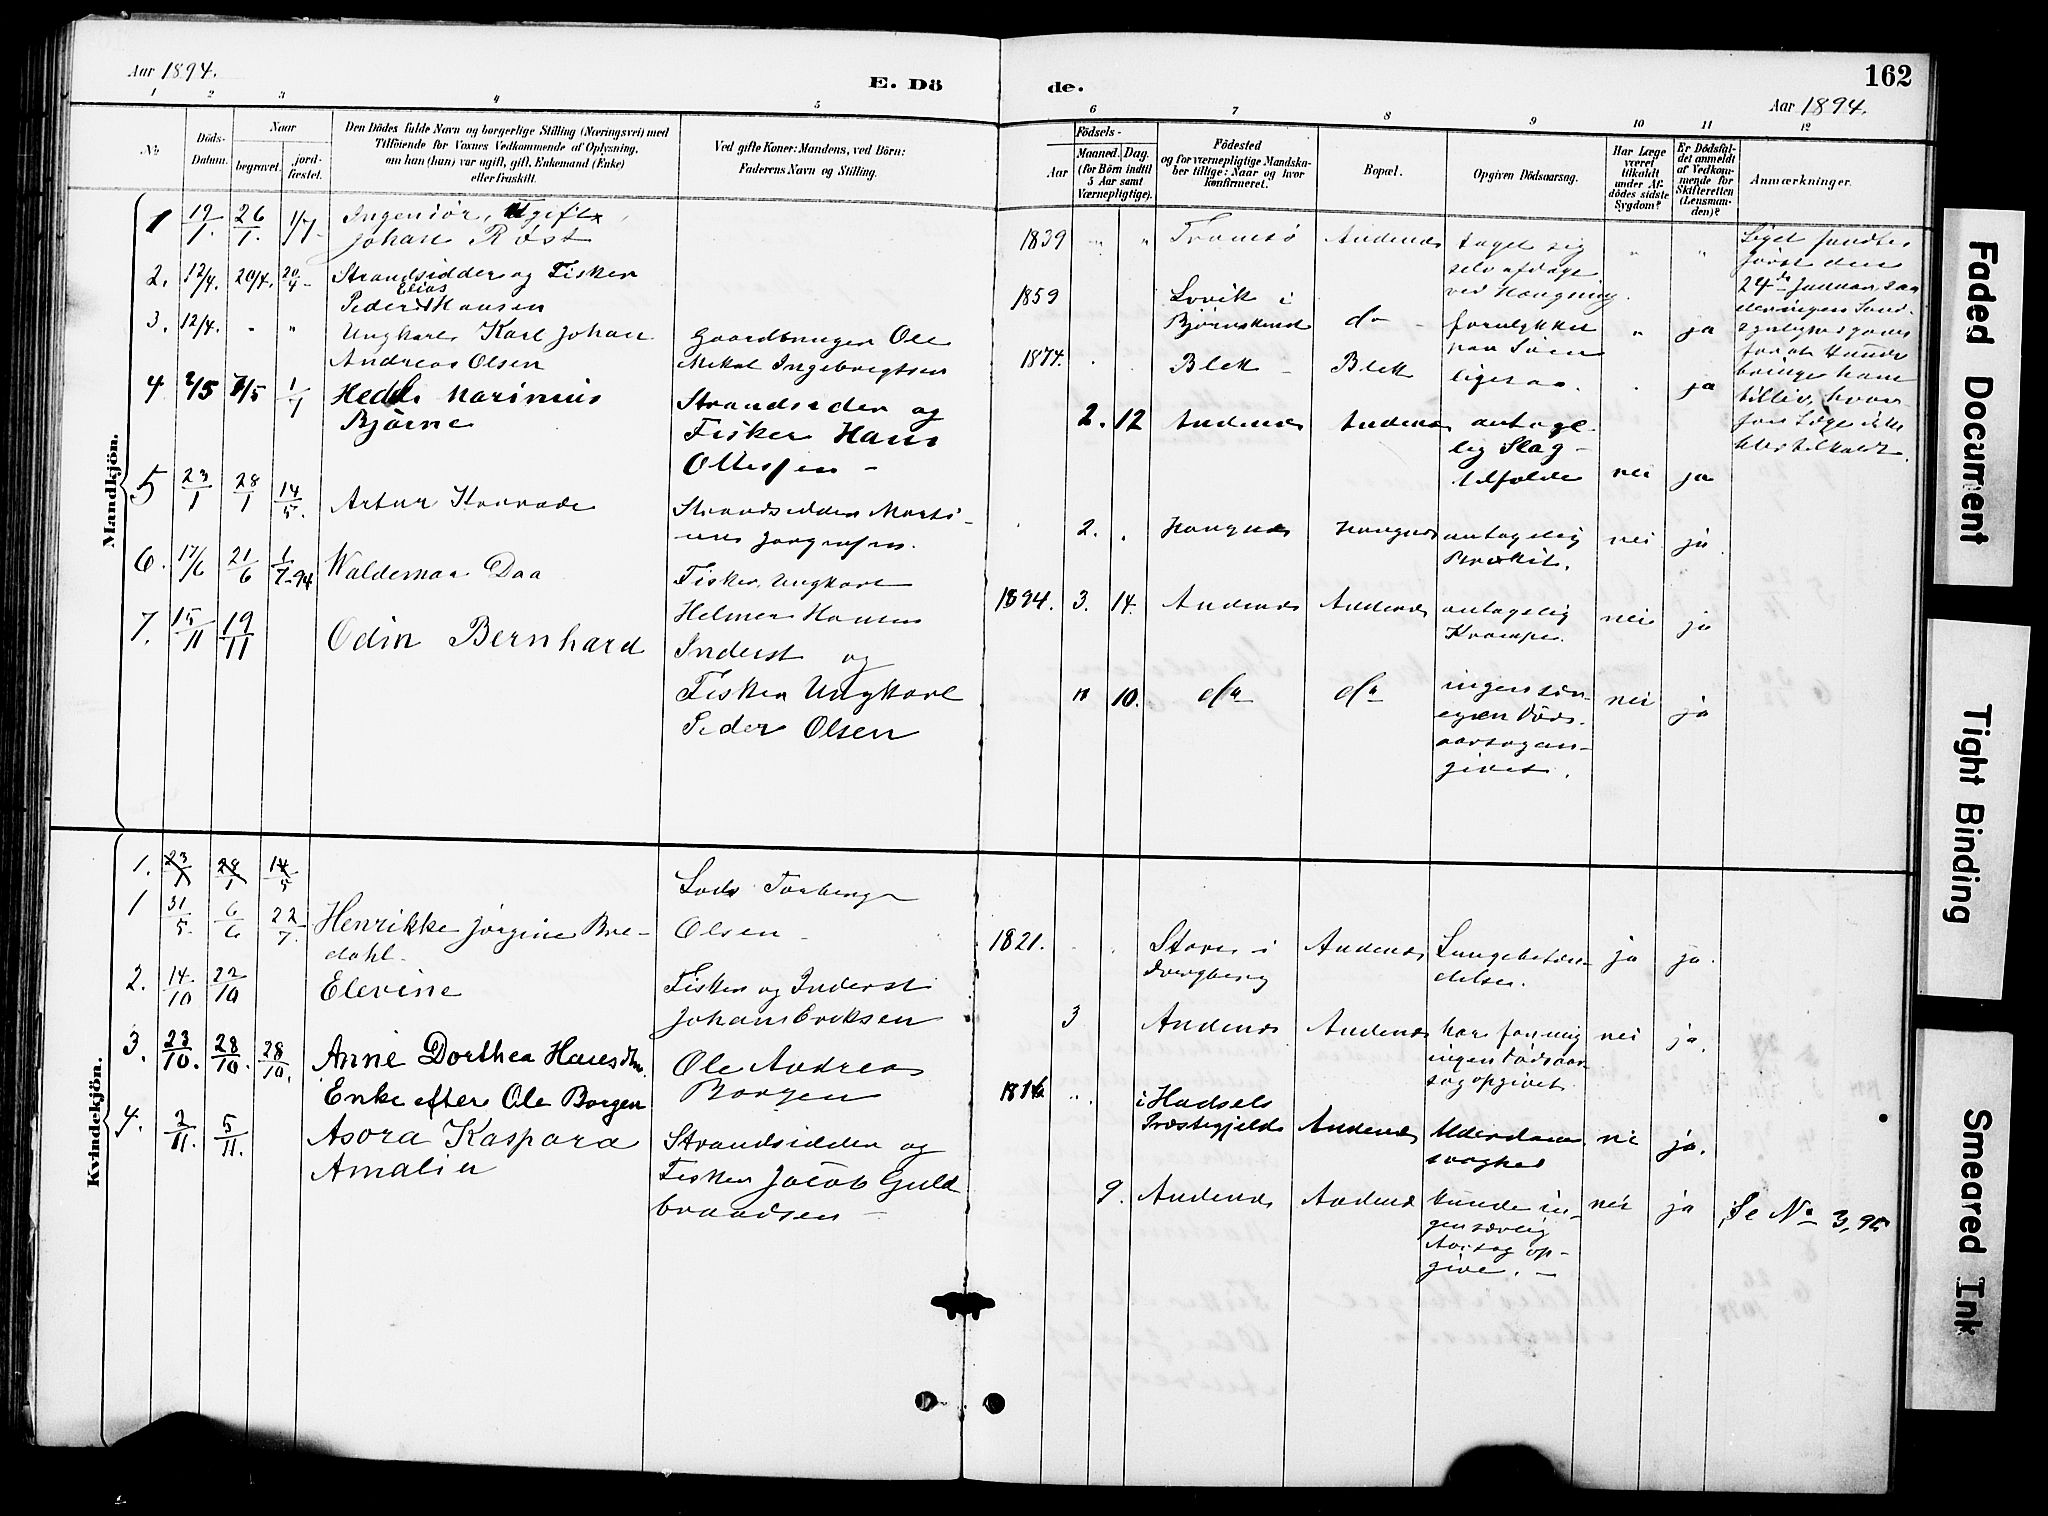 Aar 1894.
E. Dö de.
162
Aar 1894.
1 2 3 4 5 6 7 8 9 10 11 12
No
Döds-
Datum.
Naar
begravet
jord-
fæstet.
Den Dödes fulde Navn og borgerlige Stilling (Næringsvei) med
Tilföiende for Voxnes Vedkommende af Oplysning,
om han (hun) var ugift, gift, Enkemand (Enke)
eller fraskilt.
Ved gifte Koner: Mandens, ved Börn:
Faderens Navn og Stilling.
Födsels-
Aar
Maaned.
Dag.
(for Börn indtil
5 Aar samt
Værnepligtige).
Födested
og for værnepligtige Mandska-
ber tillige: Naar og hvor
konfirmeret.
Bopæl.
Opgiven Dödsaarsag.
Har Læge
været
tilkaldt
under Af-
dödes sidste
Sygdom?
Er Dödsfal-
det anmeldt
af Vedkom-
mende for
Skifteretten
(Lensman-
den)?
Anmærkninger.
Mandkjön.
1 19/1. 26/1. 1/7
Ingeniör, Ugift
Johan Röst
1839 " " Tromsö Andenæs
taget sig
selv afdage
ved Hængning.
" "
Liget fandtes
först den
24de Januar saa
for at kunde
bringe ham
tillive, hvor-
for Læge ikke
blev tilkaldt.
2. 12/4. 20/4. 20/4
Strandsidder og Fisker
Elias
Peder Hansen
1859
i
Björnskind
do
forulykket
paa Söen
" ja
3. 12/4. " "
Ungkarl Karl Johan
Andreas Olsen
Gaardbruger Ole
Mekal Ingebrigtsen
1874. Blek Blek
ligesaa.
" ja
4 2/5 7/5 1/1
Marinius
Bjarne
Strandsidder og
Fisker Hans
Ottesen
2. 12 Andenæs Andenæs
antage-
lig Slag-
tilfælde
nei ja
5 23/1 28/1 14/5.
Artur Konrade
Strandsidder Marti-
nus Jörgensen.
2. Haugnæs Haugnæs
antagelig
nei ja
6. 17/6 21/6 1/7-94
Waldemar Daa
Fisker, Ungkarl
Helmer Hansen
1894. 3. 14. Andenæs Andenæs
antagelig
Krampe.
nei ja
7. 15/11 19/11
Odin Bernhard
Inderst og
Fisker Ungkarl
Peder Olsen
" 10. do do
ingen sær-
egen Döds-
aarsag an-
givet.
nei ja
Kvindekjön.
1. 23/1 28/1 14/5
1 31/5. 6/6 22/7.
Henrikke Jörgine Bre-
dahl.
Lods Torberg
Olsen
1821. Stave i
Dverberg
Andenæs
Lungebetæn-
delse.
ja ja.
2. 14/10 22/10
Elevine
Fisker og Inderst
Johan Eriksen
3 Andenæs Andenæs
har for mig
ingen Dödsaar-
sag opgivet.
nei ja.
3. 23/10. 28/10. 28/10.
Anne Dorthea Hansdtr.
Enke efter Ole Borgen
Ole Andreas
Borgen
1816 "
i Hadsels
Præstegjeld
Andenæs
Alderdoms
svaghed
nei ja.
4. 2/11. 5/11.
Asora Kaspara
Amalia
Strandsidder og
Fisker Jacob Guld
brandsen
9. Andenæs Andenæs
kunde in-
gen særlig
Aarsag op-
give.
nei ja
Se No 3, 95
Faded Document
Tight Binding
Smeared Ink